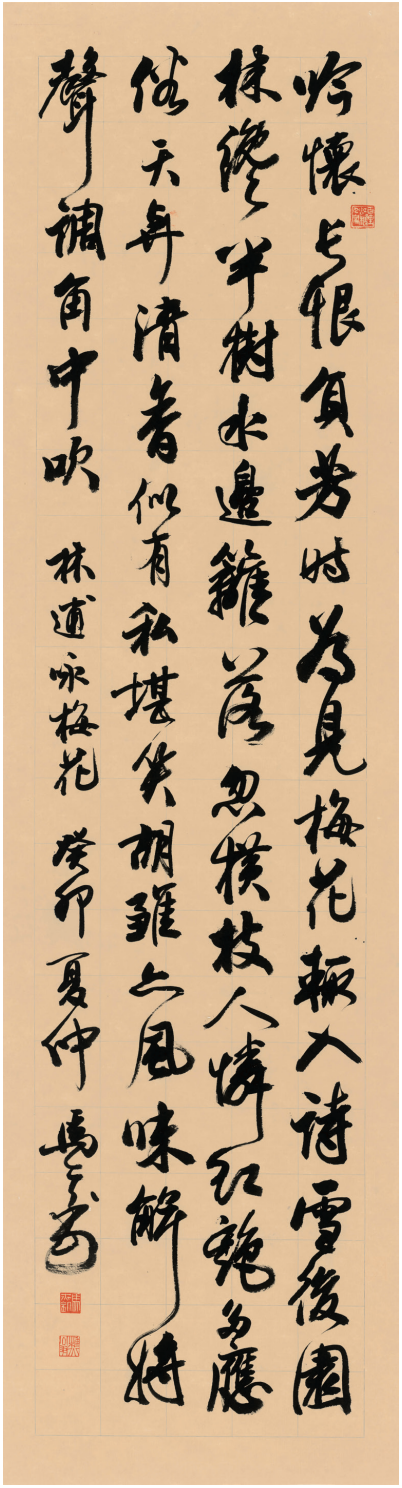 吟懷長恨負芳時為見梅花輒入詩雪後園
林纔半樹水邊籬落忽橫枝人憐紅艷多應
俗天與清香似有私堪笑胡雛亦風味解將
聲調角中吹 林逋咏梅花 癸卯夏仲 馬